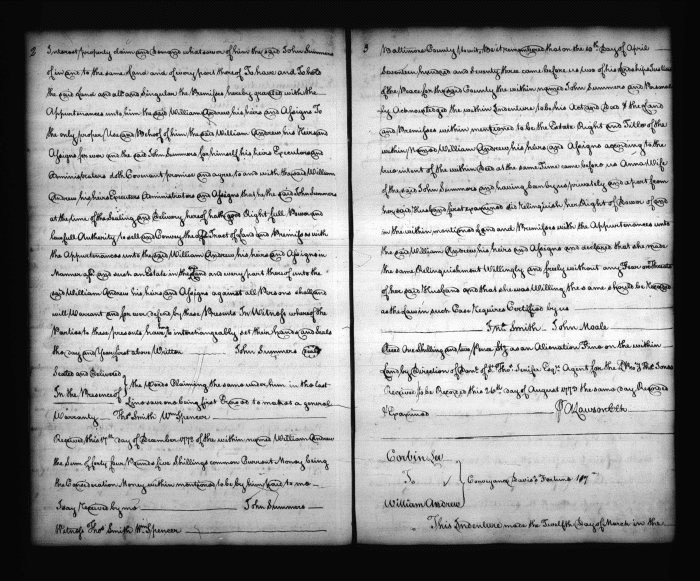 2 Interest property claim and demand whatsoever of him the said John Summers
of in and to the same Land and of every part thereof To have and To hold
the said Land and all and singular the Premisses hereby granted with the
Appurtenances unto him the said William Andrew his heirs and Assigns To
the only proper Use and Behoof of him the said William Andrew his Heirs and
Assigns for ever and the said John Summers for himself his heirs Executors and
Administrators doth Covenant promise and agree to and with the said William
Andrew his heirs Executors Administrators and Assigns that he the said John Summers
at the time of the Sealing and Delivery hereof hath good Right full Power and
lawfull Authority to sell and Convey the afd Tract of Land and Premisses with
the Appurtenances unto the said William Andrew his heirs and Assigns in
Manner afd and such an Estate in the Land and every part thereof unto the
said William Andrew his heirs and Assigns against all Persons shall and
will Warrant and for ever defend by these Presents In Witness whereof the
Parties to these presents have to interchangeably set their hands and Seals
the day and Year first above Written John Summers seal
Sealed and Delivered
In the Presence of } the Words Claiming the same under him in the last
Line save one being first Erased to make it a general
Warranty Thos Smith Wm Spencer
Received this 17th day of December 1772 of the within named William Andrew
the Sum of forty four Pounds five Shillings common Current Money being
the Consideration Money within mentioned to be by him paid to me
I say Received by me John Summers
Witness Thos Smith Wm Spencer
3 Baltimore County to wit, Be it remembered that on the 10th Day of April
Seventeen hundred and Seventy three came before us two of his Lordships Justices
of the Peace for the said County the within named John Summers and Personal
ly Acknowledged the within Indenture to be his Act and Deed & the Land
and Premisses within mentioned to be the Estate Right and Title of the
within Named William Andrew his heirs and Assigns according to the
true intent of the within Deed at the same Time came before us Anna Wife
of the said John Summers and having been by us privately and apart from
her said Husband first examined did relinquish her Right of Dower of and
in the within mentioned Land and Premisses with the Appurtenances unto
the said William Andrew his heirs and Assigns and declared that she made
the same Relinquishment Willingly and freely without any Fear or Threats
of her said Husband and that she was Willing the same should be Recorded
as the Law in such Case Requires Certified by us
Thos Smith John Moale
Recd One Shilling and two Pence Stg as an Alienation Fine on the within
Land by direction of Edwd Thos Agent for the
Received to be Recorded this 26th day of August 1773 the same day Recorded
& Examined A Lawson Clk
Corbin Lee
To } Conveyance Davis's Fortune 107
William Andrew
This Indenture made the Twelfth Day of March in the